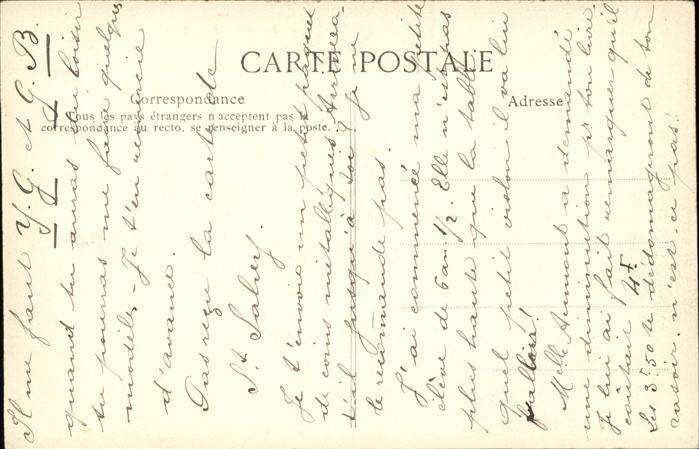 CARTE POSTALE
Correspondance
Tous les pays étrangers n'acceptent pas la
correspondance au recto, se renseigner à la poste.
Adresse
Il me faut Y. G. et G. B
quand tu auras du loisir
tu pourras me faire quelques
modèles - Je t'en remercie
d'avance.
Pas reçu la carte de
St Saberf
Je t'envoie un petit paquet
de coins métalliques. Arrivera-
t-il jusqu'à toi? Je ne
le recommande pas.
J'ai commencé ma petite
élève de 6 ans 1/2. Elle n'est pas
plus haute que la table
quel petit violon il va lui
falloir!
Melle Aumont a demandé
une diminution pr ton livre.
Je lui ai fait remarquer qu'il
coûtait 4F
Les 3F50 te dédomageront de ton
rasoir n'est-ce pas!